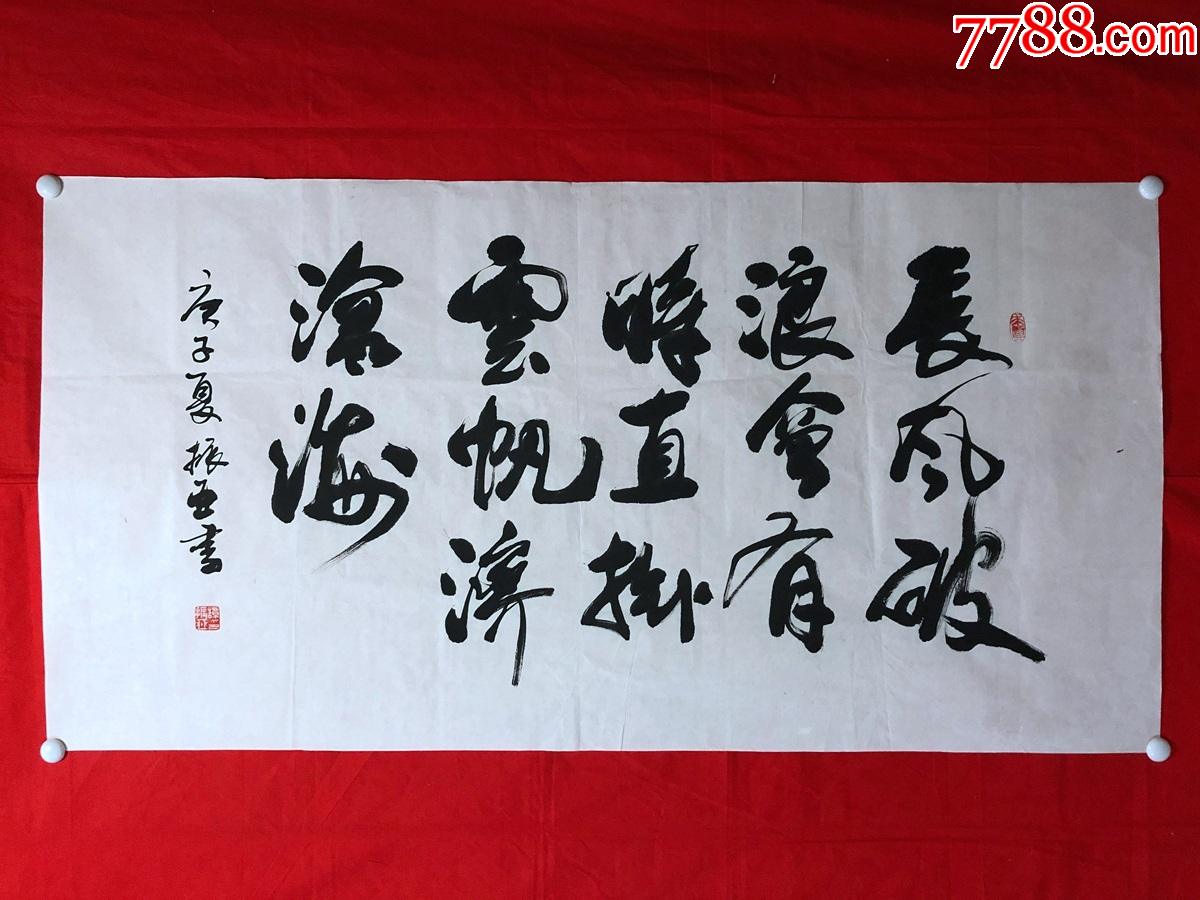 7788.com
長风破
浪會有
時直掛
雲帆濟
滄海
庚子夏振亚書